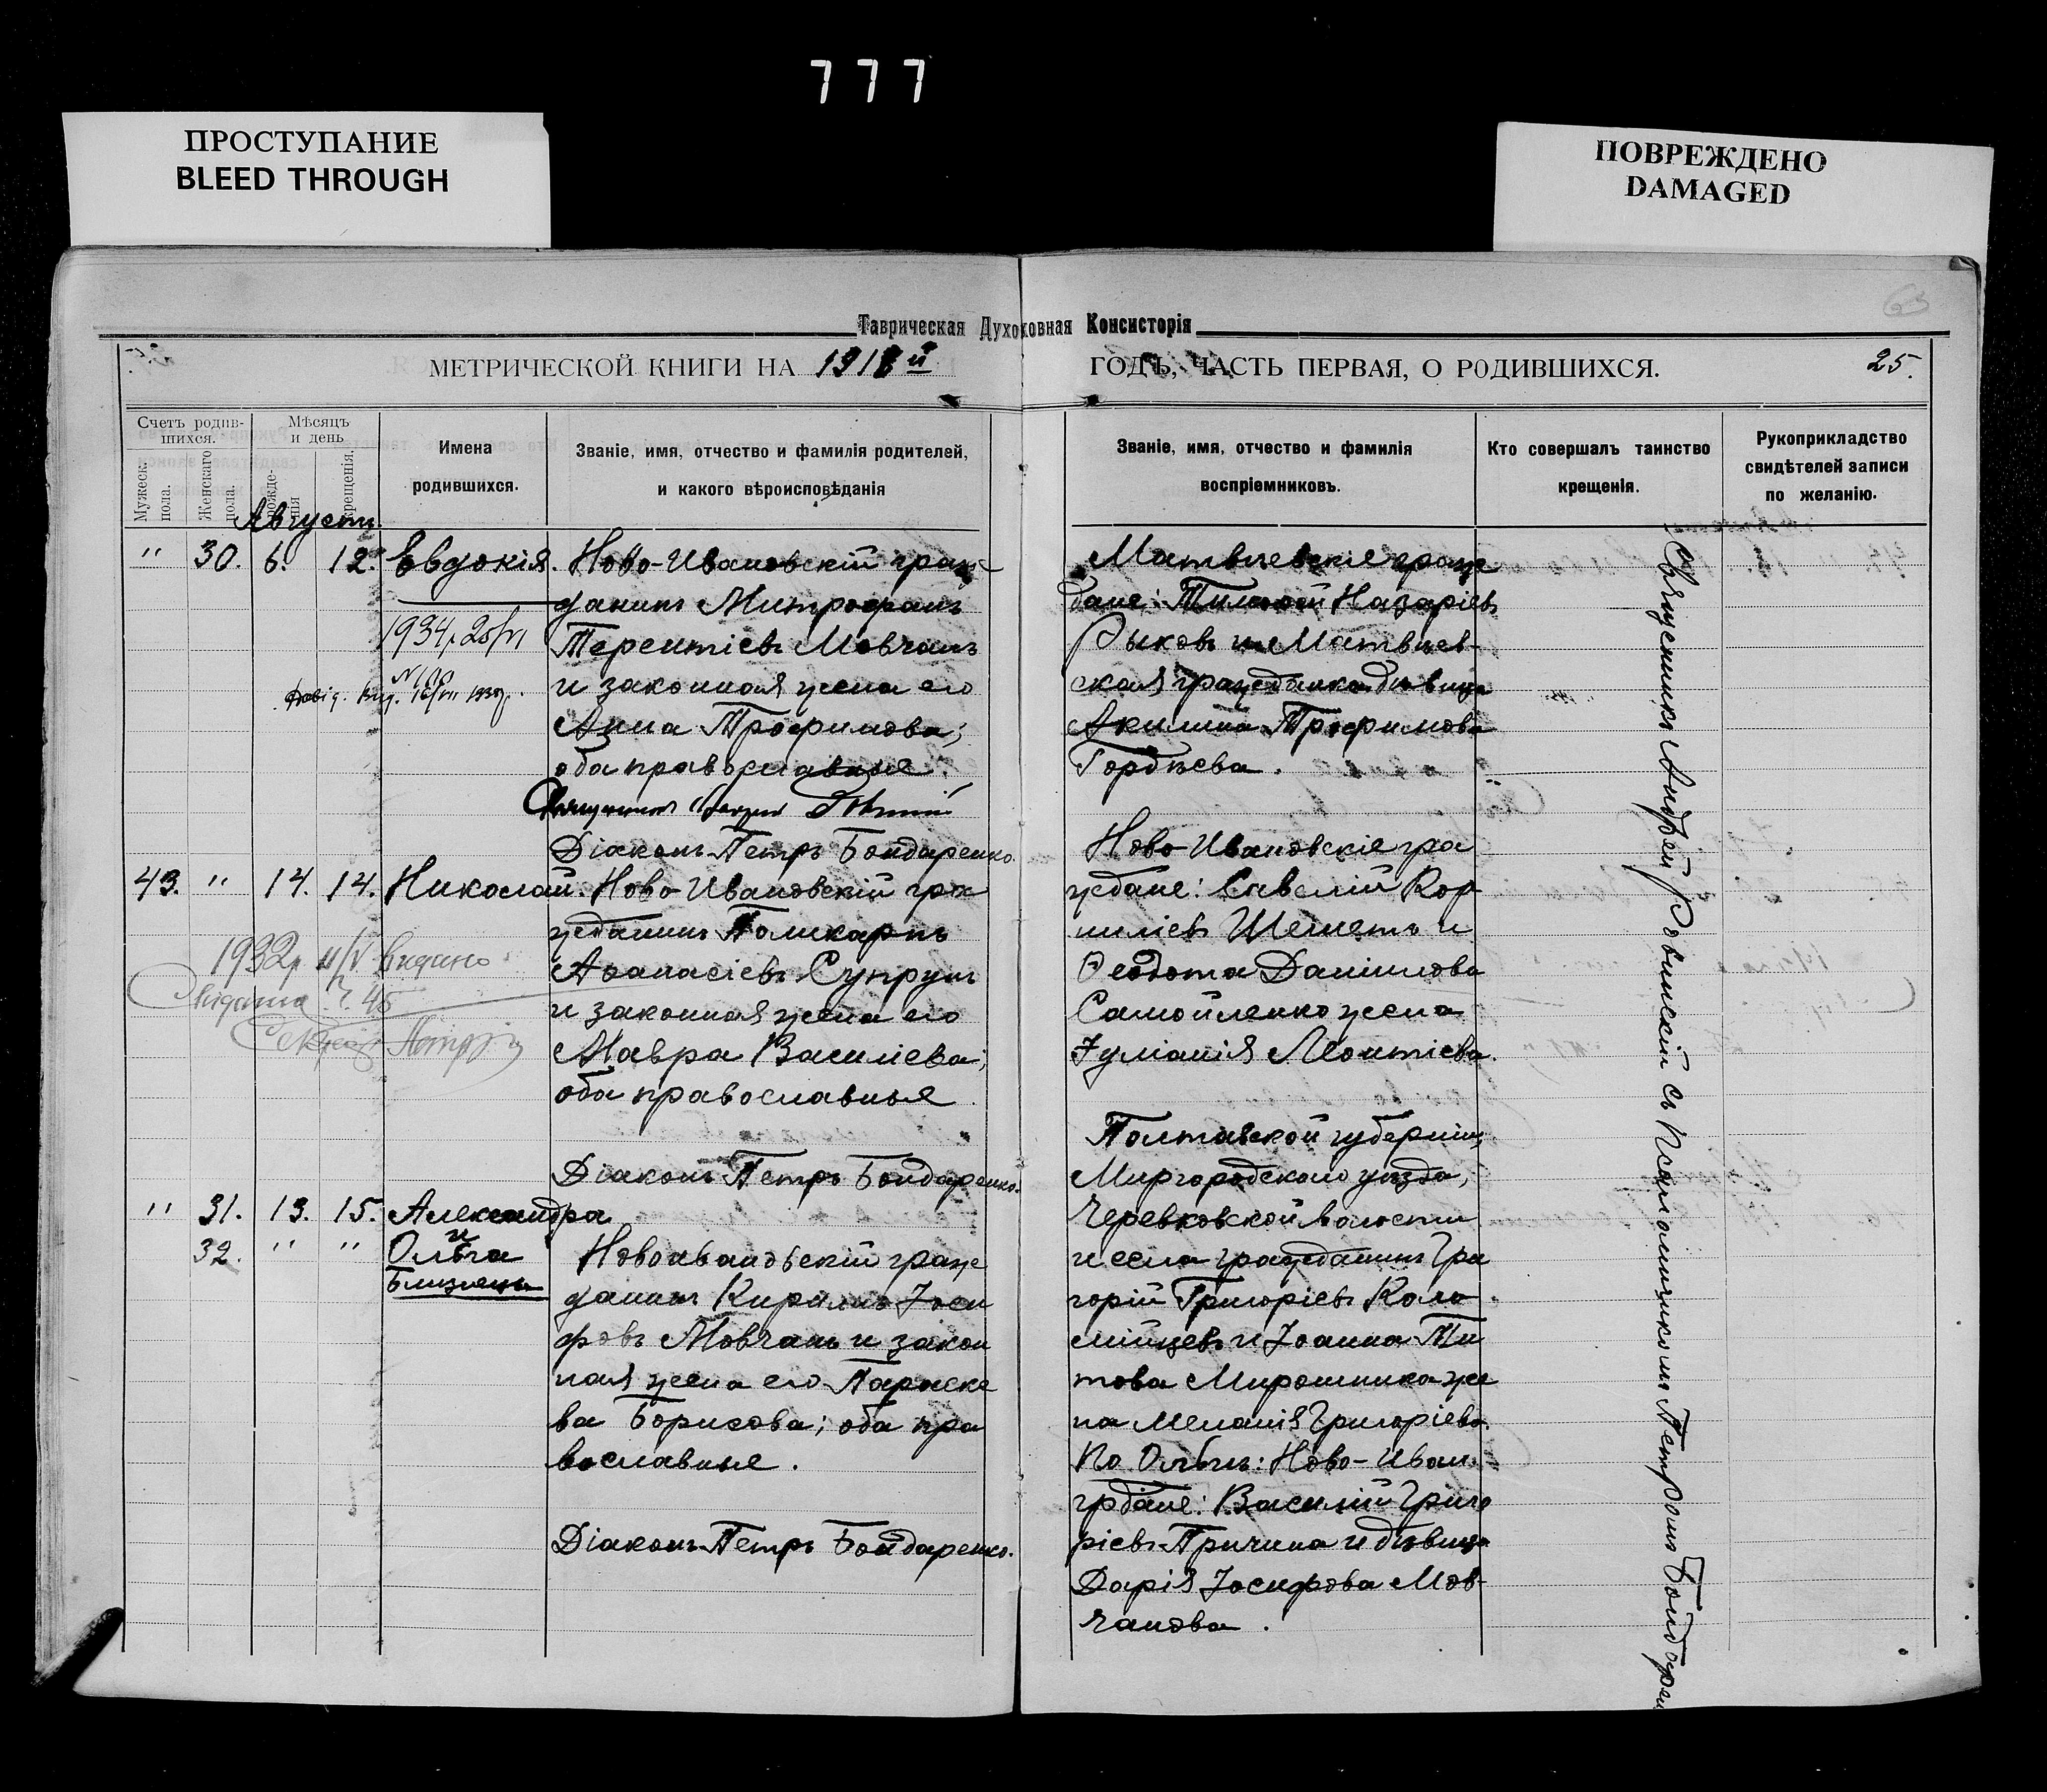 777
ПРОСТУПАНИЕ
BLEED THROUGH
ПОВРЕЖДЕНО
DAMAGED
Таврическая Духоховная Консисторія
МЕТРИЧЕСКОЙ КНИГИ НА 1918 й
ГОДЪ, ЧАСТЬ ПЕРВАЯ, О РОДИВШИХСЯ.
25.
Счетъ родив-
шихся.
Мужеск.
пола.
Женскаго
пола.
Мѣсяцъ
и день
рожде-
нія
крещенія.
Имена
родившихся.
Званіе, имя, отчество и фамилія родителей,
и какого вѣроисповѣданія
Званіе, имя, отчество и фамилія
воспріемниковъ.
Кто совершалъ таинство
крещенія.
Рукоприкладство
свидѣтелей записи
по желанію.
Августъ.
" 30. 6. 12. Евдокія.
1934 г.
Ново-Ивановскій граж-
данинъ Митрофанъ
Терентіевъ Мовчанъ
и законная жена его
Анна Трофимова;
оба православные.
Священникъ
Діаконъ Петръ Бондаренко.
Матвѣевскіе граж
дане: Назаріевъ
Рыковъ и Матвѣев-
ская гражданка дѣвица
Акилина Трофимова
Гордѣева.
43. " 14. 14. Николай.
1932 р. Видано
Ново-Ивановскій гра
жданинъ Поликарпъ
Аѳанасіевъ Супрунъ
и законная жена его
Мавра Василіева;
оба православные
Діаконъ Петръ Бондаренко.
Ново-Ивановскіе гра
ждане: Савелій Кор
ниліевъ Шеметъ и
Ѳеодота Даніилова
Самойленко жена
Іуліанія Леонтіева.
" 31. 13. 15. Александра
и
32. " " Ольга
Близнецы
Новоивановскій граж
данинъ Кирилъ Іоси
фовъ Мовчанъ и закон
ная жена его Параске
ва Борисова; оба пра
вославные.
Діаконъ Петръ Бондаренко.
Полтавской губерніи,
Миргородскаго уѣзда,
Черевковской волости
и села гражданинъ Гри
горій Григоріевъ Коло
мійцевъ и Іоанна Ти
това Мирошника же
на Меланія Григоріева.
По Ольгѣ: Ново-Иван.
грдане: Василій Григо
ріевъ Причина и дѣвица
Дарія Іосифова Мов-
чанова.
Священникъ Андрей Ровинскій съ Псаломщикомъ Петромъ Бондарен